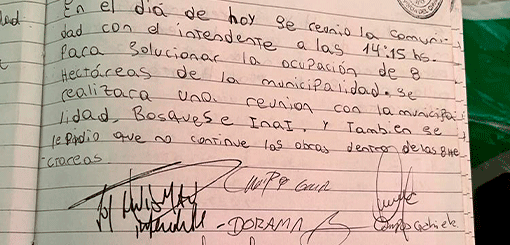 En el día de hoy se reunio la comuni
dad con el intendente a las 14:15 hs.
Para Solucionar la ocupación de 8
Hectáreas de la municipalidad. Se
realizara una reunion con la municipa
lidad, Bosques e Inai. y Tambien se
le pidio que no continue las obras dentro de las 8 He
ctareas
intendente
-DORAMA
Campos Gabriela